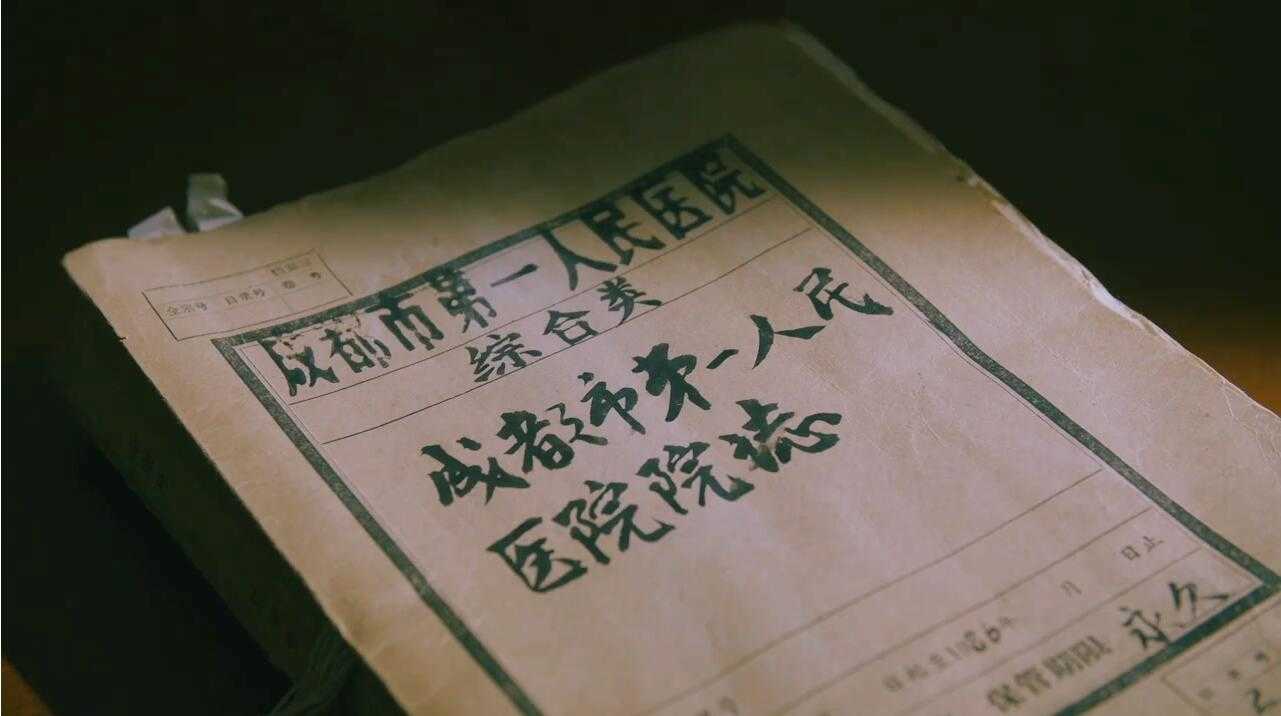 全宗号 目录号
成都市第一人民医院
综合类
成都市第一人民
医院院誌
日起至1986年 月 日止
保管期限 永久